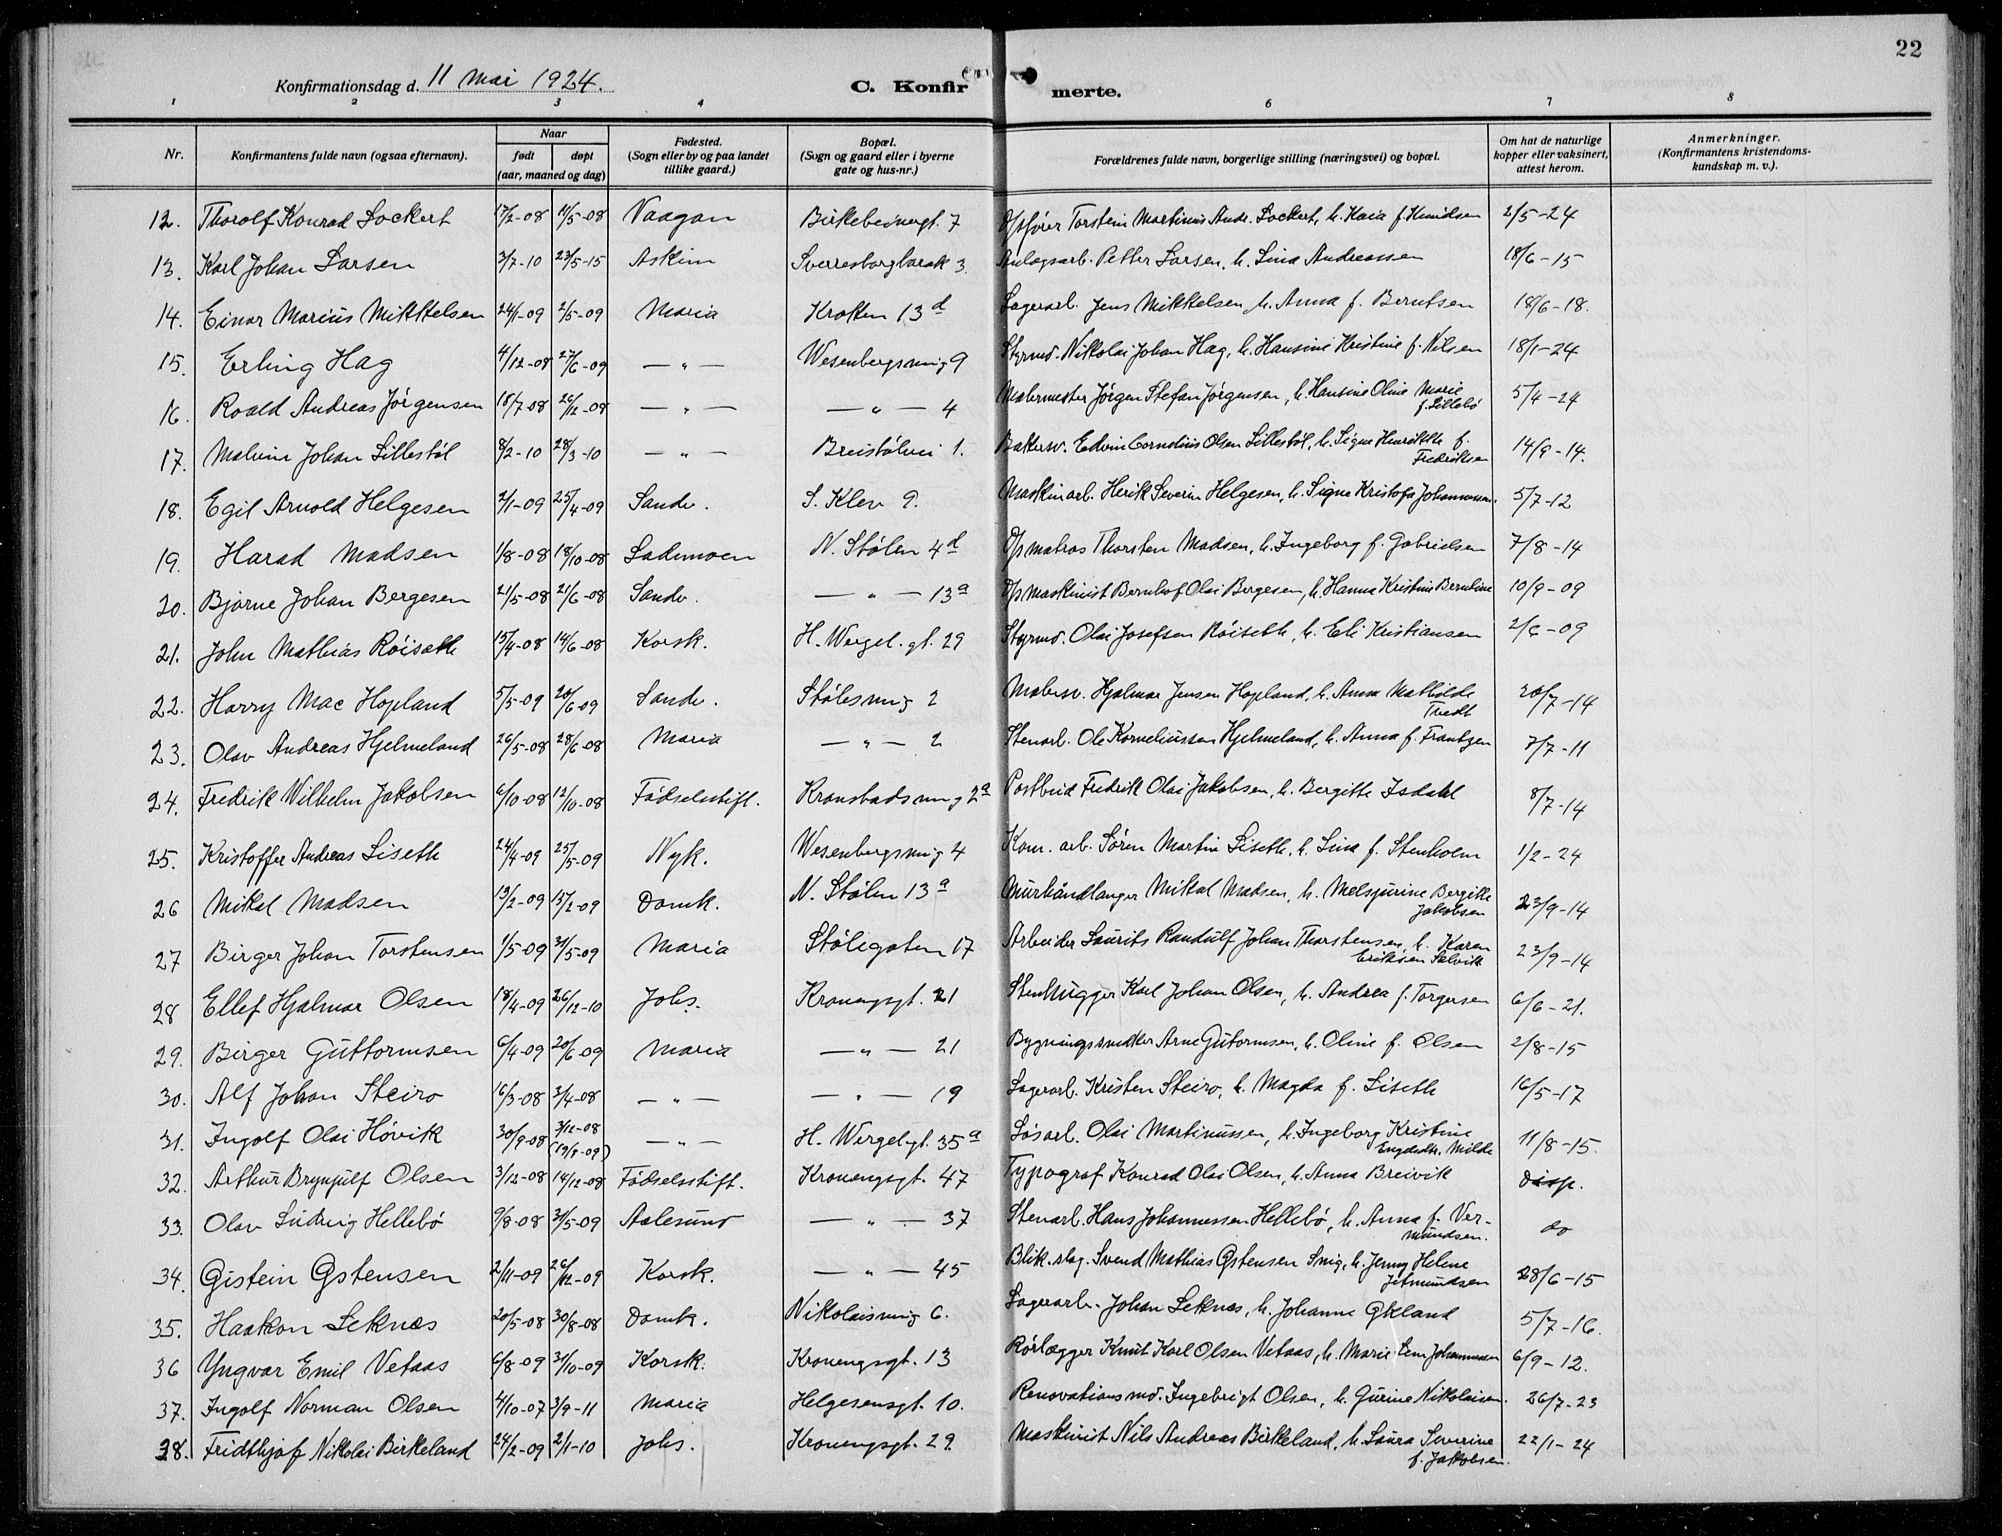 22
Konfirmationsdag d. 11 mai 1924.
C. Konfirmerte.
1 2 3 4 6 7 8
Nr. | Konfirmantens fulde navn (ogsaa efternavn). | Naar født døpt (aar, maaned og dag) | Fødested. (Sogn eller by og paa landet tillike gaard.) | Bopæl. (Sogn og gaard eller i byerne gate og hus-nr.) | Forældrenes fulde navn, borgerlige stilling (næringsvei) og bopæl. | Om hat de naturlige kopper eller vaksinert, attest herom. | Anmerkninger. (Konfirmantens kristendomskundskap m. v.).
12. Thorolf Konrad Lockert 17/2-08 11/5-08 Vaagan Birkebeinergt. 7 Opsfører Torstein Martinus Andr. Lockert, h. Kaia f. Knudsen 2/5-24
13. Karl Johan Larsen 3/7-10 23/5-15 Askim Sverresborgbarak 3. Anlagsarb. Petter Larsen, h. Lina Andreassen 18/6-15
14. Einar Marius Mikkelsen 24/1-09 2/5-09 Maria Krotten 13d Lagerarb. Jens Mikkelsen, h. Anna f. Berntsen 18/6-18.
15. Erling Hag 4/12-08 27/6-09 — " — Wesenbergsmug 9 Styrmd. Nikolai Johan Hag, h. Hansine Kristine f. Nilsen 18/1-24
16. Roald Andreas Jörgensen 18/7-08 26/12-08 — " — — " — 4 Malermester Jörgen Stefan Jörgensen, h. Hansine Oline Marie f. Lillebö 5/4-24
17. Malvin Johan Lillestöl 8/2-10 28/3-10 — " — Breistölvei 1. Bakersv. Edvin Cornelius Olsen Lillestöl, h. Signe Henrikke f. Fredriksen 14/9-14.
18. Egil Arnold Helgesen 2/1-09 25/4-09 Sandv. S. Klev 9. Maskinarb. Herik Severin Helgesen, h. Signe Kristofa Johannessen. 5/7-12
19. Harad Madsen 1/8-08 18/10-08 Lademoen N. Stølen 4d D/s matros Thorsten Madsen, h. Ingeborg f. Gabrielsen 7/8-14
20. Bjarne Johan Bergesen 21/5-08 21/6-08 Sandv. — " — 13a D/s maskinist Bernhof Olai Bergesen, h. Hanna Kristine Berntine 10/9-09
21. John Mathias Röiseth 15/4-08 14/6-08 Korsk. H. Wergel. gt. 29 Styrmd. Olai Josefsen Röiseth, h. Eli Kristiansen 2/6-09
22. Harry Mac Hopland 5/5-09 20/6-09 Sandv. Stølesmug 2 Malersv. Hjalmar Jensen Hopland, h. Anna Mathilde Tvedt 20/7-14
23. Olav Andreas Hjelmeland 26/5-08 28/6-08 Maria — " — 2 Stenarb. Ole Korneliussen Hjelmeland, h. Anna f. Frantzen 7/7-11
24. Fredrik Wilhelm Jakobsen 6/10-08 12/10-08 Födselsstift. Kronstadsmug 2a Postbud Fredrik Olai Jakobsen, h. Bergitte Isdahl 8/7-14
25. Kristoffer Andreas Liseth 24/4-09 25/5-09 Nyk. Wesenbergsmug 4 Kom. arb. Sören Martin Liseth, h. Lina f. Stenholm 1/2-24
26 Mikal Madsen 13/2-09 15/2-09 Domk. N. Stølen 13a Murhåndlanger Mikal Madsen, h. Melsjurine Bergitte Jakobsen 23/9-14
27 Birger Johan Torstensen 1/5-09 31/5-09 Maria Stölegaten 17 Arbeider Laurits Randulf Johan Thorstensen, h. Karen Eriksen Selvik 23/9-14
28 Ellef Hjalmar Olsen 18/4-09 26/12-10 Johs. Kronengsgt. 21 Stenhugger Karl Johan Olsen, h. Andrea f. Torgersen 6/6-21.
29. Birger Guttormsen 6/4-09 20/6-09 Maria — " — 21 Bygningssnedker Arne Gutormsen, h. Oline f. Olsen 2/8-15
30. Alf Johan Steiro 16/3-08 3/4-08 — " — — " — 19 Lagerarb. Kristen Steiro, h. Magda f. Liseth 16/5-17
31. Ingolf Olai Hövik 30/9-08 3/12-08 (19/9-09) — " — H. Wergel.gt. 35a Løsarb. Olai Martinussen, h. Ingeborg Kristine Engedtr. Milde 11/8-15.
32. Arthur Brynjulf Olsen 3/12-08 14/12-08 Födselsstift. Kronengsgt. 47 Typograf Konrad Olai Olsen, h. Anna Breivik disp.
33. Olav Ludvig Hellebö 9/8-08 31/5-09 Aalesund — " — 37 Stenarb. Hans Johannessen Hellebö, h. Anna f. Vermundsen. do
34. Gistein Østensen 2/11-09 26/12-09 Korsk. — " — 45 Blik. slag. Svend Mathias Østensen Snig, h. Jenny Helene Jetmundsen 28/6-15
35. Haakon Leknes 20/5-08 30/8-08 Domk. Nikolaismug 6. Lagerarb. Johan Leknes, h. Johanne Økland 5/7-16.
36 Yngvar Emil Vetaas 6/8-09 31/10-09 Korsk. Kronengsgt. 13 Rörlægger Knut Karl Olsen Vetaas, h. Marie Lem Johannesen 6/9-12.
37. Ingolf Norman Olsen 4/10-07 3/9-11 Maria Helgesensgt. 10. Renovationsmd. Ingebrigt Olsen, h. Gurine Nikolaisen. 26/7-23
38. Fridthjof Nikolai Birkeland 24/2-09 2/1-10 Johs. Kronengsgt. 29. Maskinist Nils Andreas Birkeland, h. Laura Severine f. Jakobsen. 22/1-24